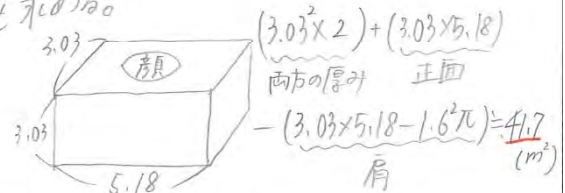 を求める。
3.03
顔
3.03
5.18
(3.03²×2)+(3.03×5.18)
両方の厚み 正面
-(3.03×5.18-1.6²π)≒41.7
肩
(m²)